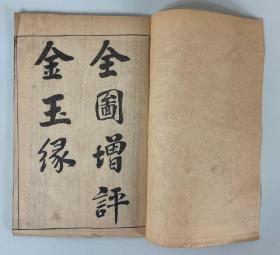 全圖增評
金玉緣